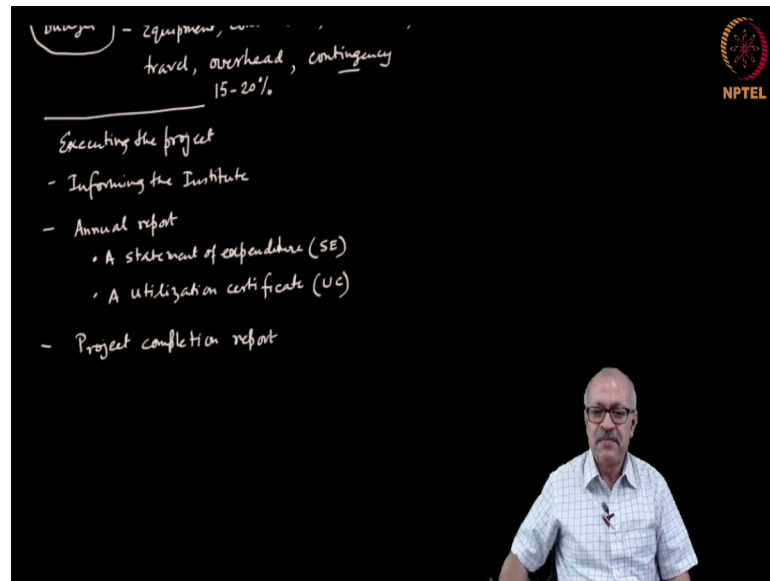 Budget - Equipment,
travel, overhead, contingency
15-20%
NPTEL
Executing the project
- Informing the Institute
- Annual report
• A statement of expenditure (SE)
• A utilization certificate (UC)
- Project completion report